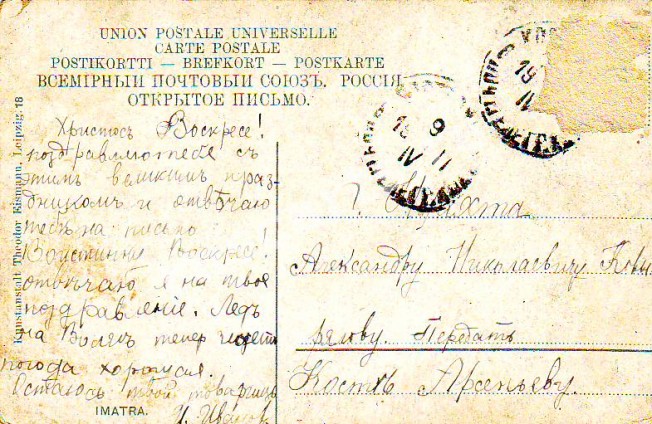 UNION POSTALE UNIVERSELLE
CARTE POSTALE
POSTIKORTTI — BREFKORT — POSTKARTE
ВСЕМІРНЫЙ ПОЧТОВЫЙ СОЮЗЪ. РОССІЯ.
ОТКРЫТОЕ ПИСЬМО.
Kunstanstalt Theodor Eismann, Leipzig. 18
Христосъ Воскресе!
поздравляю тебе съ
этимъ великимъ праз
дникомъ и отвѣчаю
тебѣ на письмо
Воистинну Воскресе!
отвѣчаю я на твое
поздравленіе. Ледъ
на Волгѣ тепер
погода хорошая.
Остаюсь твой товарищъ
И. Ивановъ
IMATRA.
9
IV 11
19
IV
г.
Александру Николаевичу
Передать
Костѣ Арсеньеву.